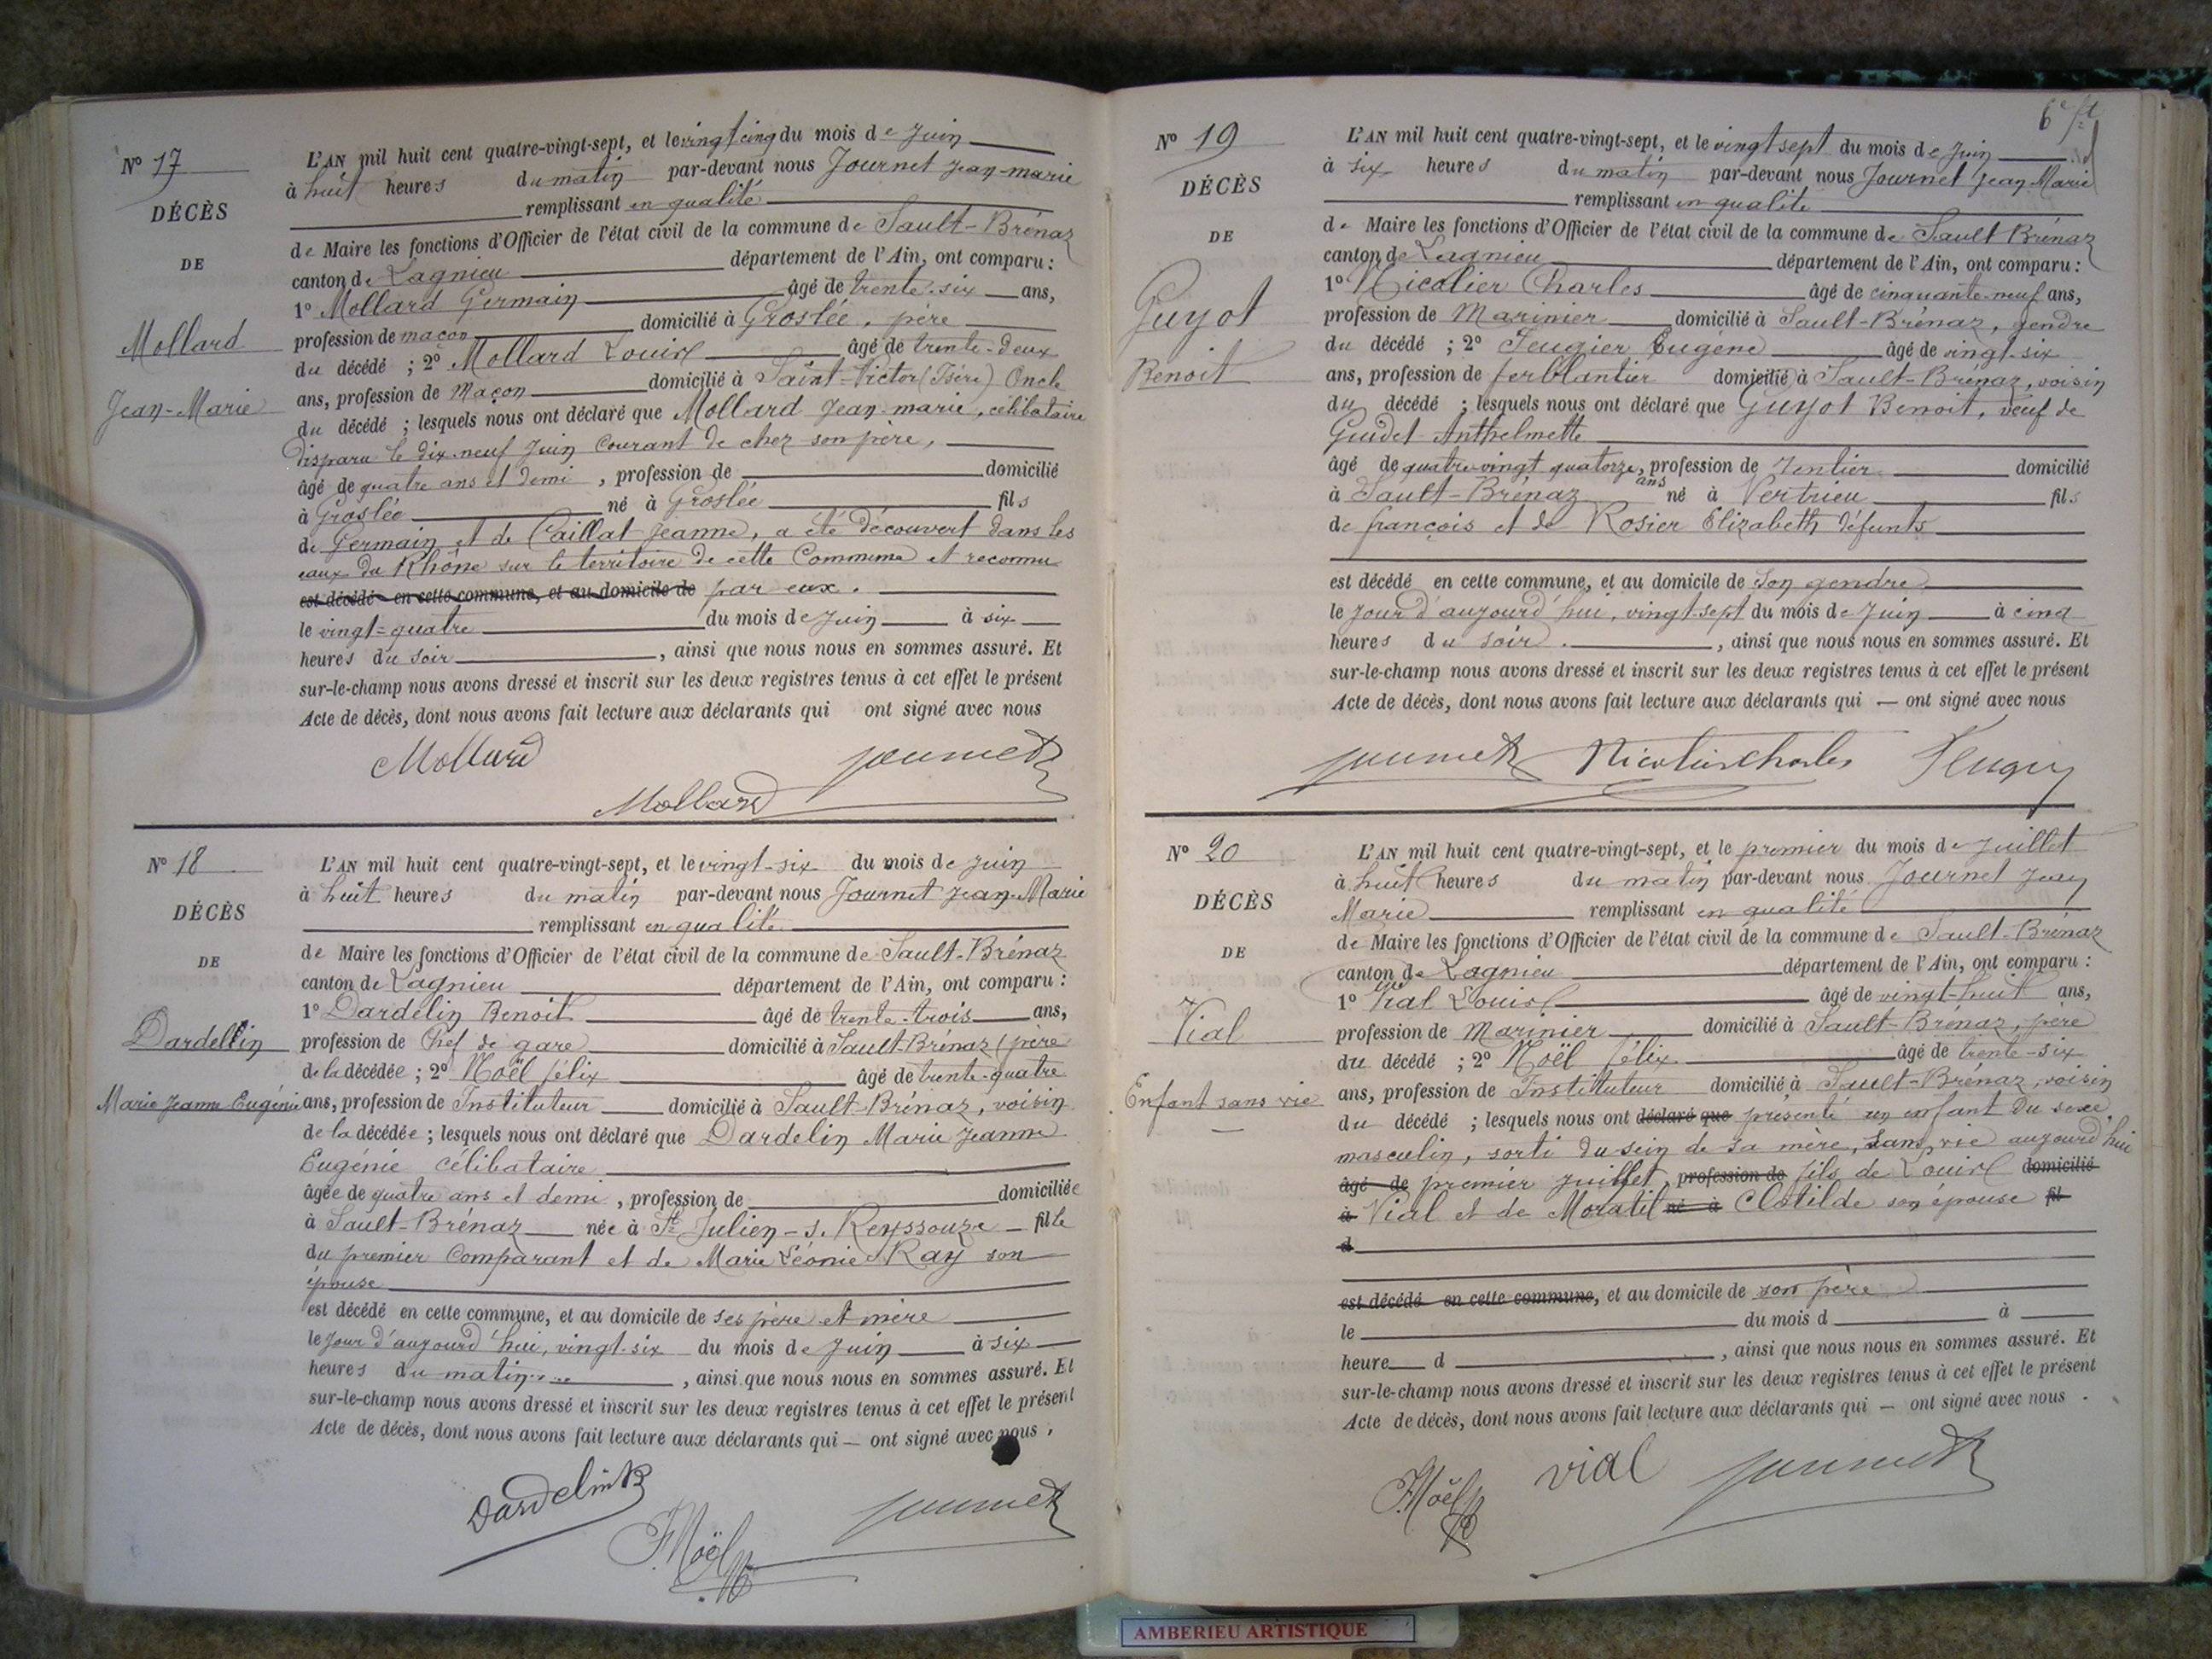 N° 17
DÉCÈS
DE
Mollard
Jean-Marie
L'AN mil huit cent quatre-vingt-sept, et le vingt cinq du mois de Juin
à huit heures du matin par-devant nous Journet Jean-marie
remplissant en qualité
de Maire les fonctions d'Officier de l'état civil de la commune de Sault-Brénaz
canton de Lagnieu département de l'Ain, ont comparu :
1° Mollard Germain âgé de trente-six ans,
profession de maçon domicilié à Groslée, père
du décédé ; 2° Mollard Louis âgé de trente-deux
ans, profession de Maçon domicilié à Saint-Victor (Isère) Oncle
du décédé ; lesquels nous ont déclaré que Mollard Jean-marie, célibataire
disparu le dix-neuf Juin Courant de chez son père,
âgé de quatre ans et demi, profession de domicilié
à Groslée né à Groslée fils
de Germain et de Caillat Jeanne, a été découvert dans les
eaux du Rhône sur le territoire de cette Commune et reconnu
est décédé en cette commune, et au domicile de par eux.
le vingt-quatre du mois de Juin à six
heures du soir, ainsi que nous nous en sommes assuré. Et
sur-le-champ nous avons dressé et inscrit sur les deux registres tenus à cet effet le présent
Acte de décès, dont nous avons fait lecture aux déclarants qui ont signé avec nous
Mollard Journet
Mollard
N° 18
DÉCÈS
DE
Dardellin
Marie Jeanne Eugénie
L'AN mil huit cent quatre-vingt-sept, et le vingt-six du mois de Juin
à huit heures du matin par-devant nous Journet Jean-Marie
remplissant en qualité
de Maire les fonctions d'Officier de l'état civil de la commune de Sault-Brénaz
canton de Lagnieu département de l'Ain, ont comparu :
1° Dardelin Benoit âgé de trente-trois ans,
profession de Chef de gare domicilié à Sault-Brénaz, père
de la décédée ; 2° Noël félix âgé de trente-quatre
ans, profession de Instituteur domicilié à Sault-Brénaz, voisin
de la décédée ; lesquels nous ont déclaré que Dardelin Marie Jeanne
Eugénie célibataire
âgée de quatre ans et demi, profession de domiciliée
à Sault-Brénaz née à St Julien-s. Reyssouze fille
du premier Comparant et de Marie Léonie Ray son
épouse
est décédé en cette commune, et au domicile de ses père et mère
le Jour d'aujourd'hui, vingt-six du mois de Juin à six
heures du matin, ainsi que nous nous en sommes assuré. Et
sur-le-champ nous avons dressé et inscrit sur les deux registres tenus à cet effet le présent
Acte de décès, dont nous avons fait lecture aux déclarants qui — ont signé avec nous.
Dardelin B
F. Noël Journet
6e ft
N° 19
DÉCÈS
DE
Guyot
Benoit
L'AN mil huit cent quatre-vingt-sept, et le vingt sept du mois de Juin
à six heures du matin par-devant nous Journet Jean Marie
remplissant en qualité
de Maire les fonctions d'Officier de l'état civil de la commune de Sault-Brénaz
canton de Lagnieu département de l'Ain, ont comparu :
1° Nicolier Charles âgé de cinquante-neuf ans,
profession de Marinier domicilié à Sault-Brénaz, gendre
du décédé ; 2° Feugier Eugène âgé de vingt-six
ans, profession de ferblantier domicilié à Sault-Brénaz, voisin
du décédé ; lesquels nous ont déclaré que Guyot Benoit, veuf de
Gudet Anthelmette
âgé de quatre-vingt quatorze ans, profession de rentier domicilié
à Sault-Brénaz né à Vertrieu fils
de françois et de Rosier Elizabeth défunts
est décédé en cette commune, et au domicile de Son gendre
le Jour d'aujourd'hui, vingt-sept du mois de Juin à cinq
heures du soir, ainsi que nous nous en sommes assuré. Et
sur-le-champ nous avons dressé et inscrit sur les deux registres tenus à cet effet le présent
Acte de décès, dont nous avons fait lecture aux déclarants qui — ont signé avec nous
Journet Nicolier Charles Feugier
N° 20
DÉCÈS
DE
Vial
Enfant sans vie
L'AN mil huit cent quatre-vingt-sept, et le premier du mois de Juillet
à huit heures du matin par-devant nous Journet Jean
Marie remplissant en qualité
de Maire les fonctions d'Officier de l'état civil de la commune de Sault-Brénaz
canton de Lagnieu département de l'Ain, ont comparu :
1° Vial Louis âgé de vingt-huit ans,
profession de Marinier domicilié à Sault-Brénaz, père
du décédé ; 2° Noël félix âgé de trente-six
ans, profession de Instituteur domicilié à Sault-Brénaz, voisin
du décédé ; lesquels nous ont déclaré que présenté un enfant du sexe
masculin, sorti du sein de sa mère, sans vie aujourd'hui
âgé de premier juillet, profession de fils de Louis domicilié
à Vial et de Moratil né à Clotilde son épouse fil
d
est décédé en cette commune, et au domicile de son père
le du mois d à
heure d , ainsi que nous nous en sommes assuré. Et
sur-le-champ nous avons dressé et inscrit sur les deux registres tenus à cet effet le présent
Acte de décès, dont nous avons fait lecture aux déclarants qui — ont signé avec nous.
F. Noël Vial Journet
AMBERIEU ARTISTIQUE